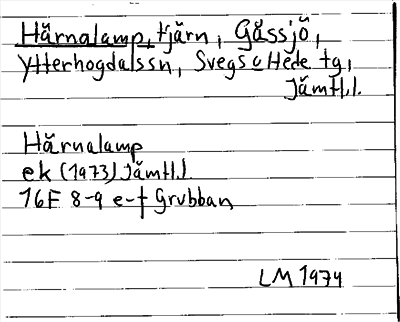 Härnalamp, tjärn, Gåssjö,
Ytterhogdalssn, Svegs o Hede tg,
Jämtl.l.
Härnalamp
ek (1973) Jämtl.l
16F 8-9 e-f Grubban
LM 1974